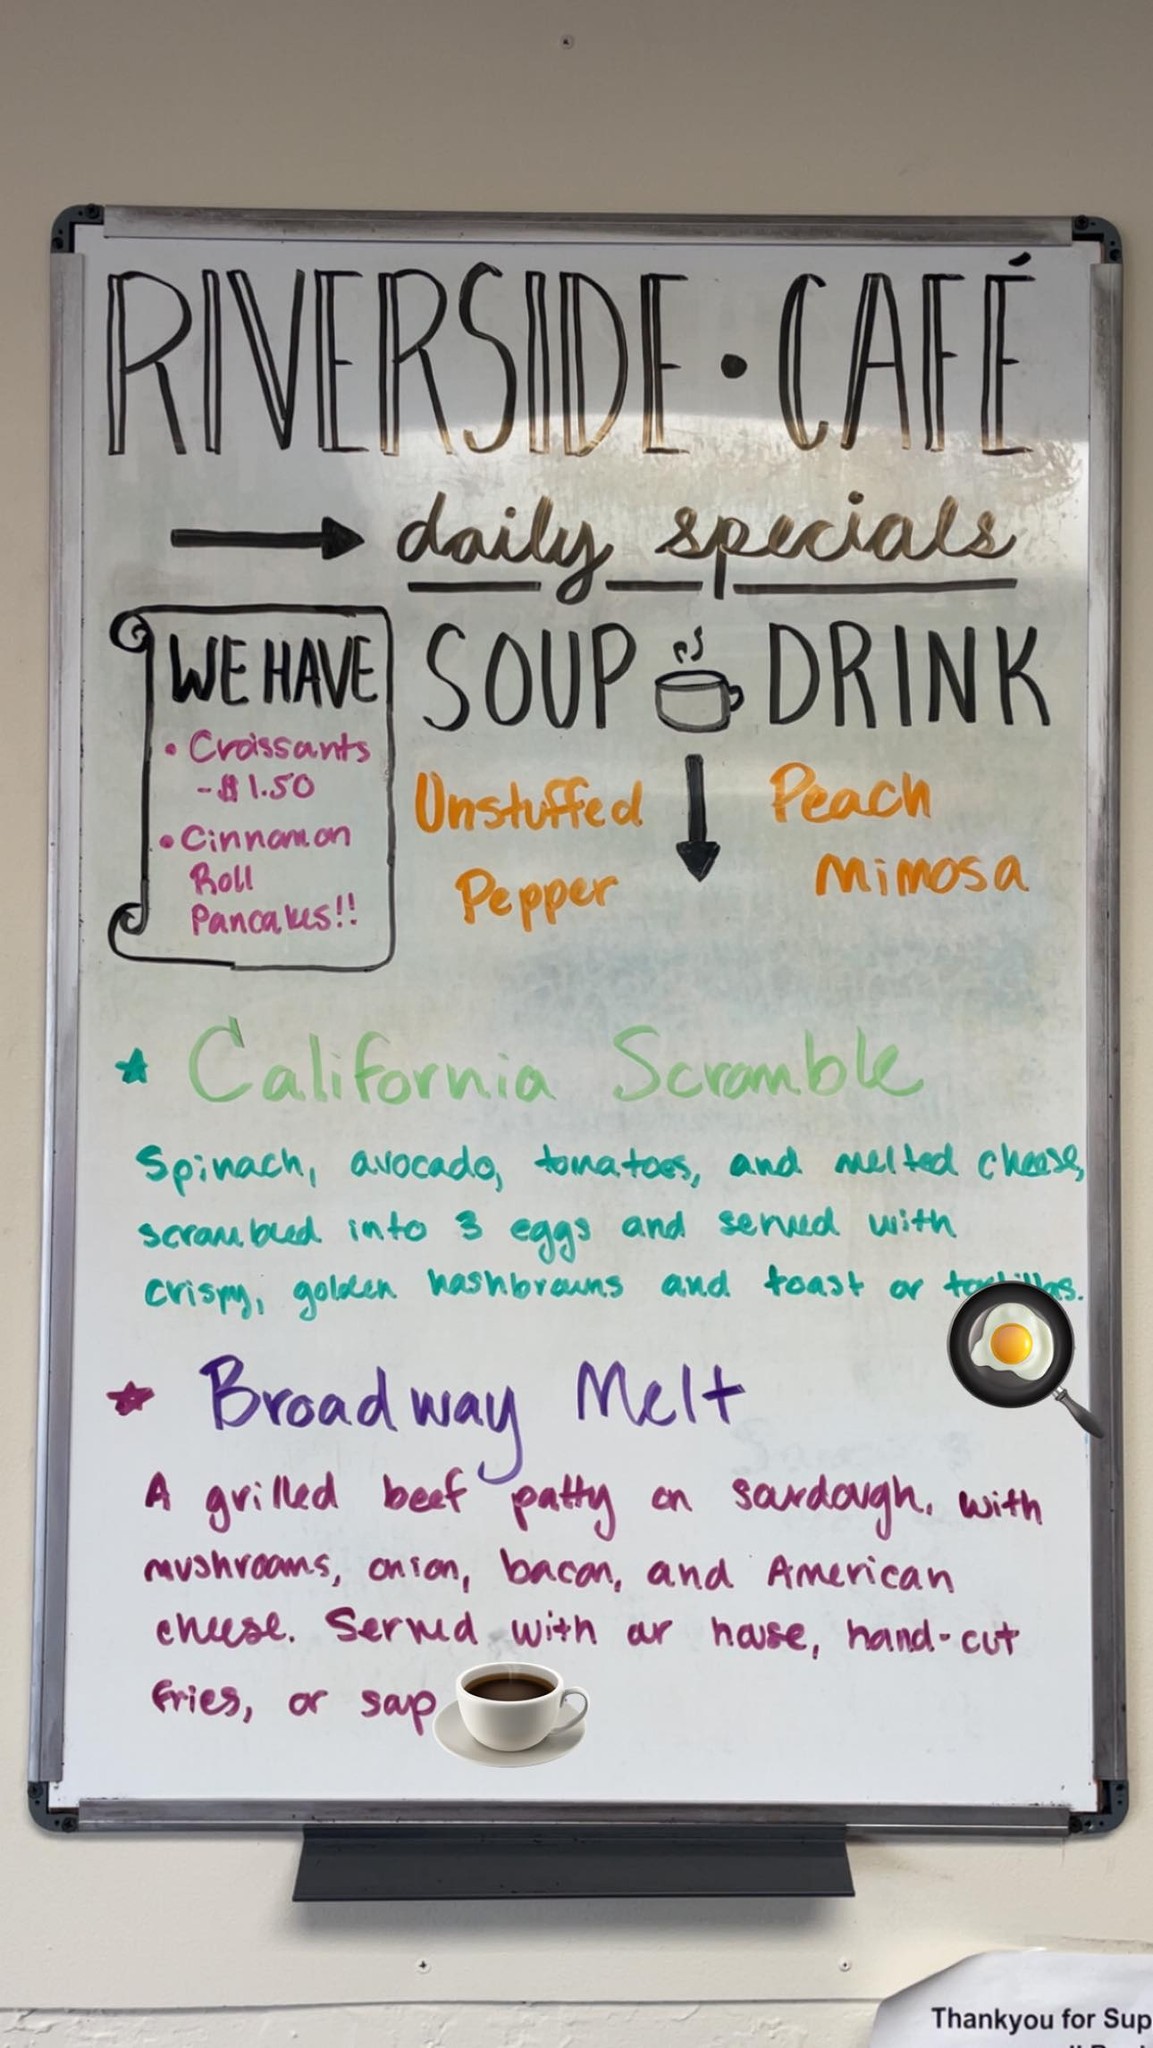 RIVERSIDE · CAFÉ
daily specials
WE HAVE
• Croissants
- $1.50
• Cinnamon
Roll
Pancakes!!
SOUP DRINK
Unstuffed
Pepper
Peach
Mimosa
California Scramble
Spinach, avocado, tomatoes, and melted cheese,
scrambled into 3 eggs and served with
crispy, golden hashbrowns and toast or tortillas.
Broadway Melt
A grilled beef patty on sourdough, with
mushrooms, onion, bacon, and American
cheese. Served with our house, hand-cut
fries, or soup
Thankyou for Sup